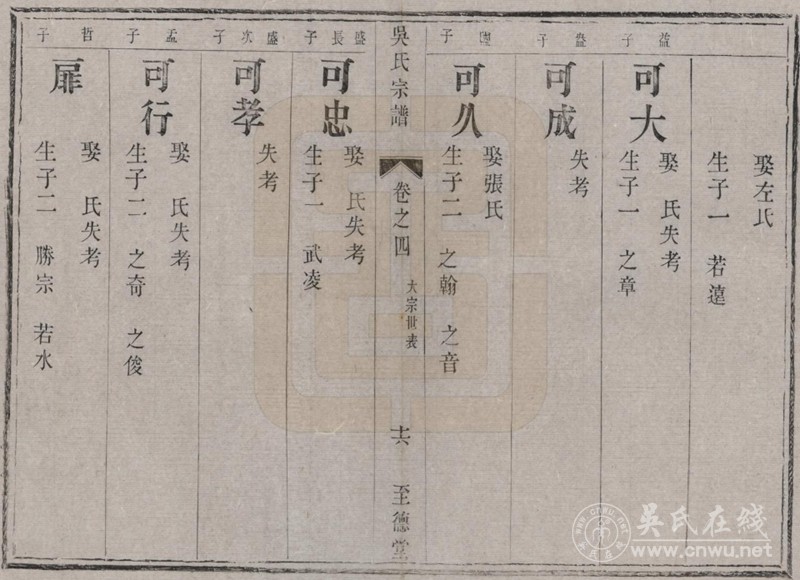 娶左氏
生子一 若蘧
益子
可大
娶 氏失考
生子一 之章
子
可成
失考
子
可久
娶張氏
生子二 之翰 之音
吳氏宗譜
卷之四
大宗世表
十六
至德堂
盛長子
可忠
娶 氏失考
生子一 武凌
盛次子
可孝
失考
孟子
可行
娶 氏失考
生子二 之奇 之俊
哲子
扉
娶 氏失考
生子二 勝宗 若水
吳氏在线
www.cnwu.net